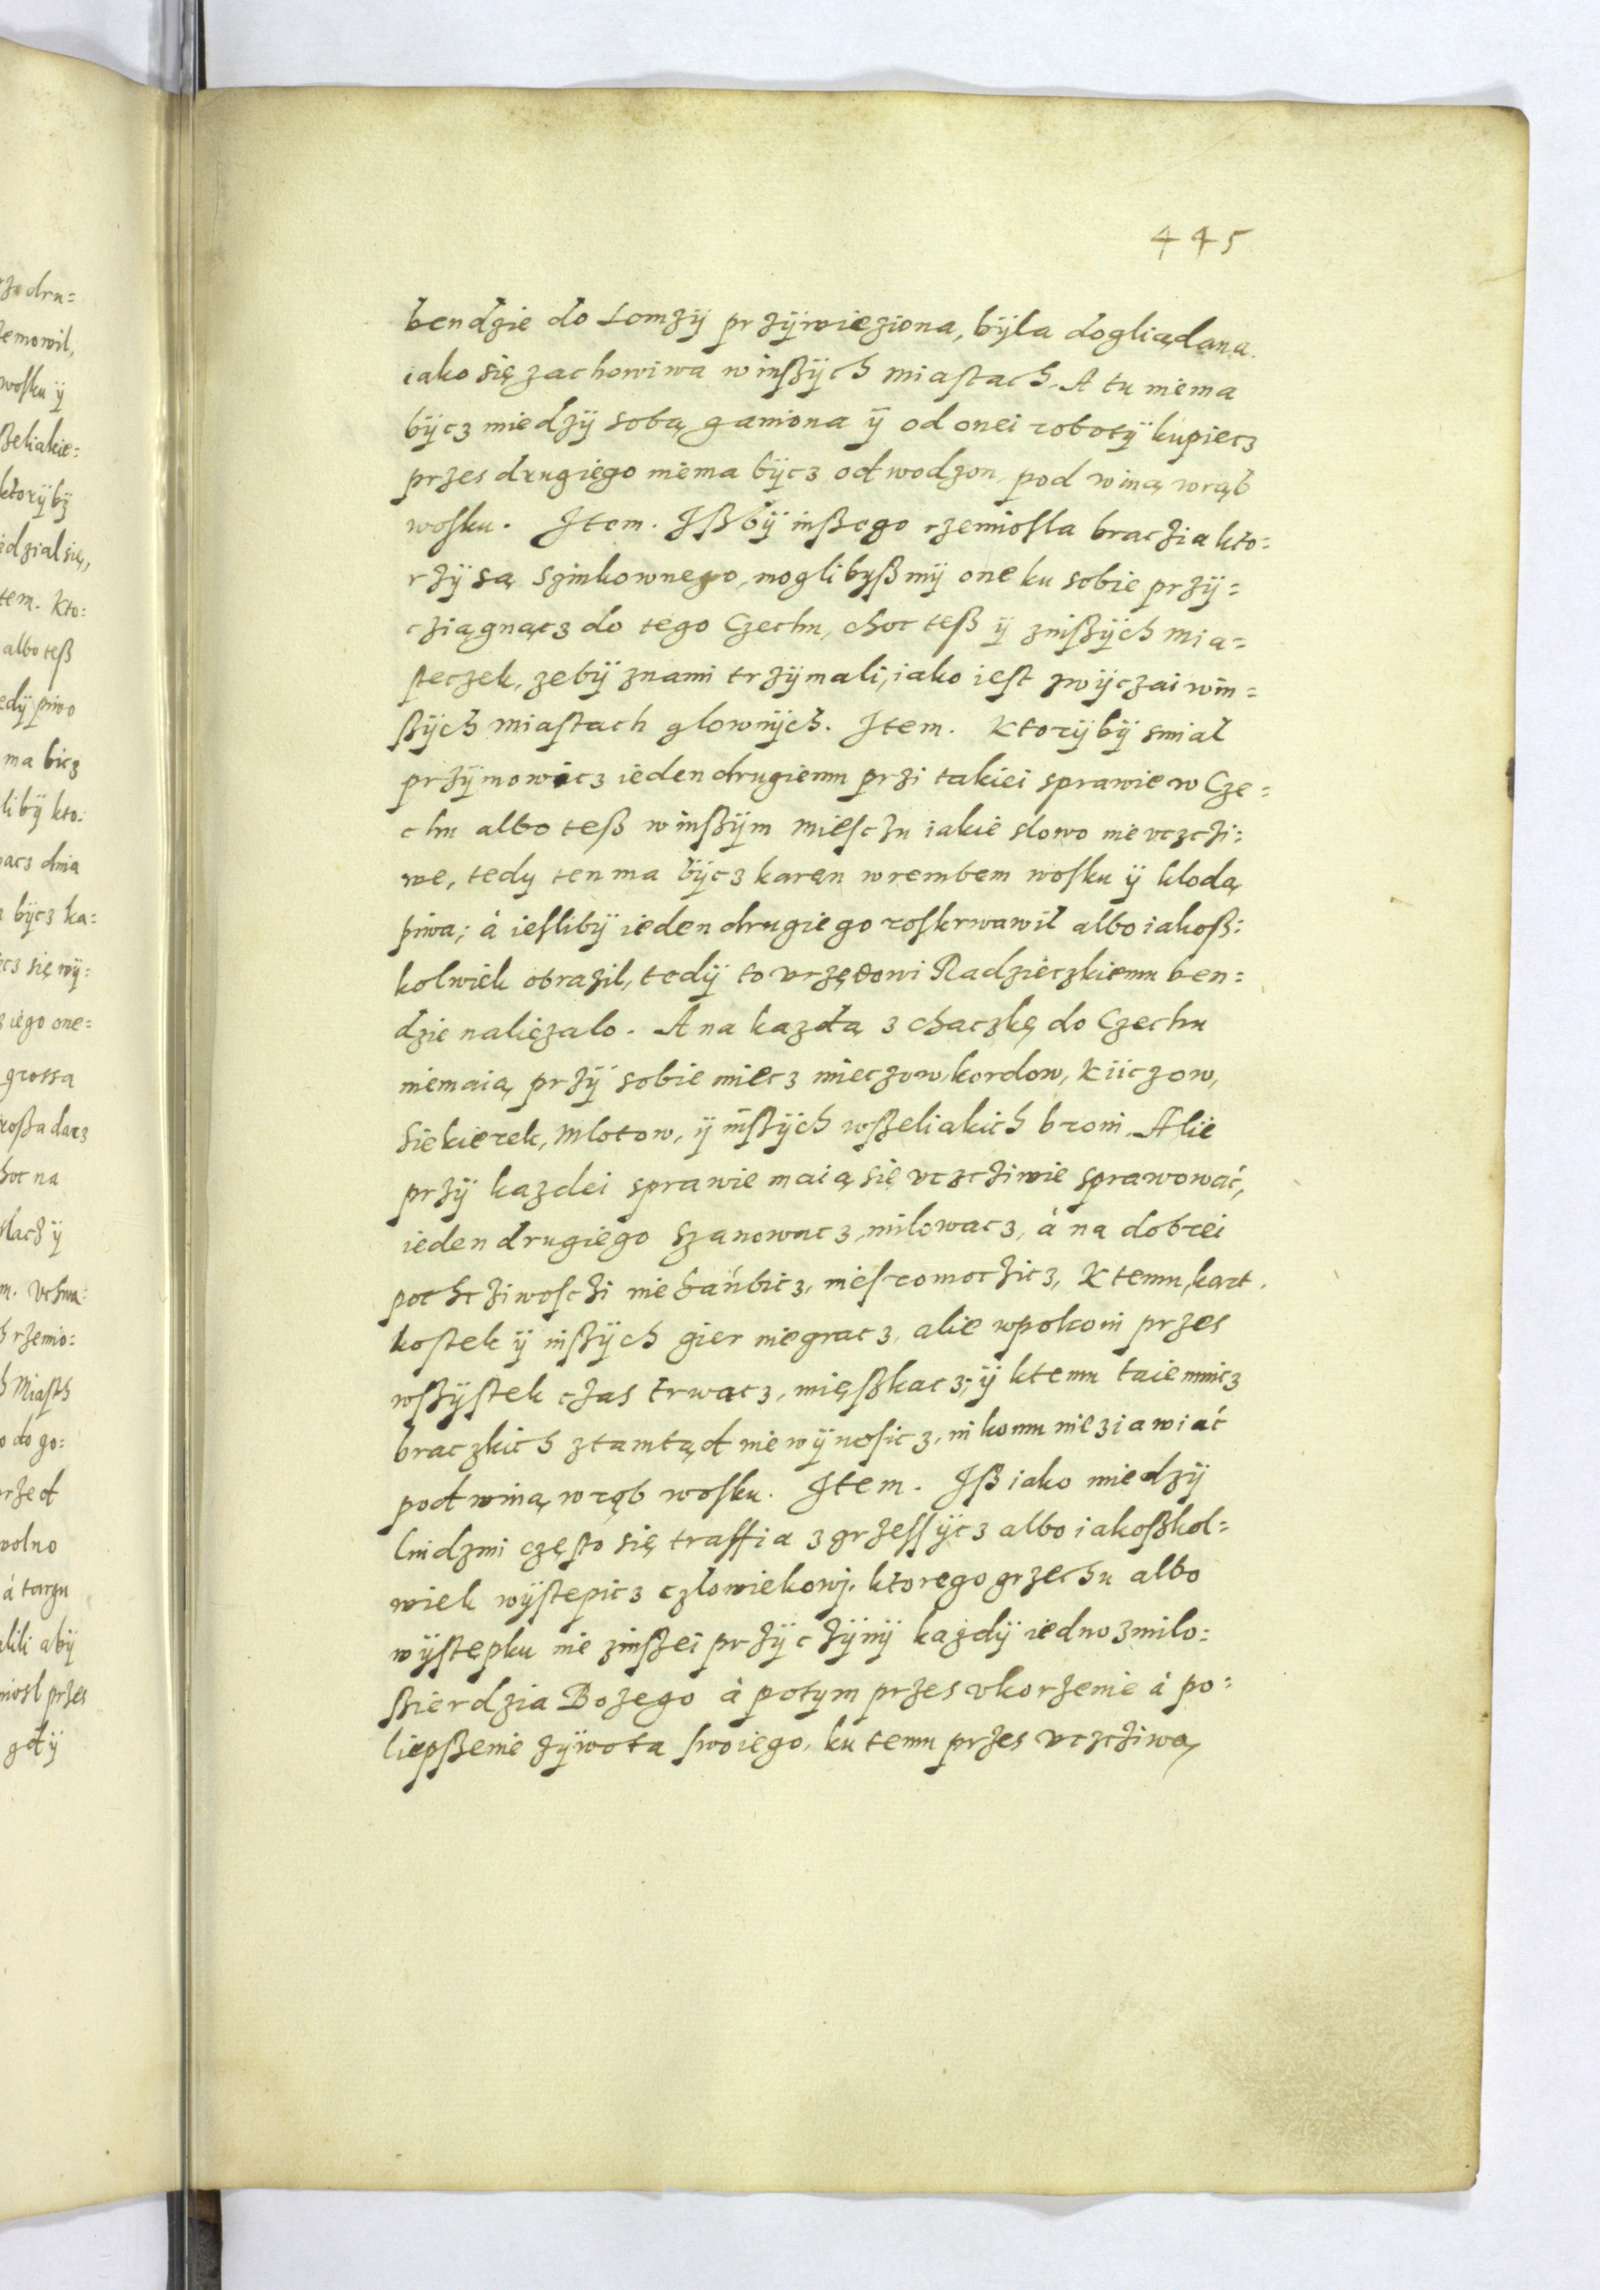 445
bendzie do Lomzÿ przÿwieziona, bÿla dogliądana.
iako się zachowiwa winßÿch miastach. A tu niema
bÿcz miedzÿ sobą ganiona ÿ od onei robotÿ kupiecz
przes drugiego niema bÿcz odwodzon, pod winą wrąb
wosku. Item. Ißbÿ inßego rzemiosla braczia kto=
rzÿ są moglibyßmÿ one ku sobie przÿ=
cziągnącz do tego Czechu, choc teß ÿ zinßÿch mia=
steczek, zebÿ znami trzÿmali, iako iest zwÿczai win=
ßÿch miastach glownÿch. Item. Ktorÿbÿ smial
przÿmowicz ieden drugiemu przi takiei sprawie w Cze=
chu albo teß winßÿm miesczu iakie slowo nie vczczi=
we, tedy ten ma bÿcz karąn wrembem wosku ÿ klodą
piwa; à iesliby ieden drugiego roskrwawil albo iakoß=
kolwiek obrazil, tedÿ to vrzędowi Radzieczkiemu ben=
dzie naliezalo. A na kazdą zchaczkę do Czechu
niemaią przÿ sobie miecz mieczow, kordow, Kiiczow,
Siekierek, Mlotow, ÿ inßÿch wßeliakich broni. Alie
przÿ kazdei sprawie maią się vczcziwie sprawować,
ieden drugiego szanowacz, milowacz, à na dobrei
pochcziwosczi niehańbicz, niesromoczicz, Ktemu, kart,
kostek ÿ inßÿch gier niegracz, alie wpokoiu przes
wßÿstek czas trwacz, mięßkacz, ÿ ktemu taiemnicz
braczkich ztamtąd niewÿnosicz, nikomu nieziawiać
pod winą wrąb wosku. Item. Iß iako miedzÿ
liudzmi często się traffia zgrzessÿcz albo iakoßkol=
wiek wÿstepicz czlowiekowj, ktorego grzechu albo
wÿstępku nie zinßei przÿczÿnÿ każdÿ iedno zmilo=
ßierdzia Bozego à potym przes vkorzenie à po=
liepßenie zÿwota swoiego, ku temu przes vczcziwą